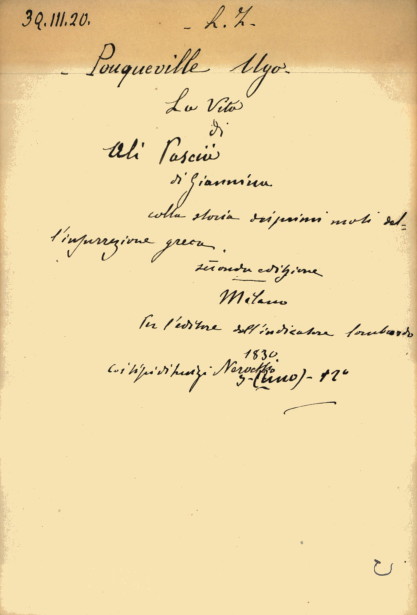 39.III.20.
- L. Z. -
- Pouqueville Ugo -
La Vita
di
Ali Pasciù
di Giannina
colla storia dei primi moti del-
l'insurrezione greca.
seconda edizione
Milano
Per l'editore dell'indicatore lombardo
1830
coi tipi di
(uno) - 12°